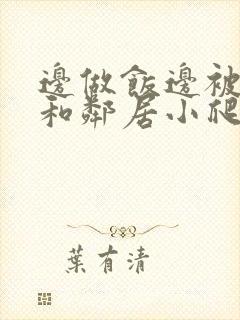 邊做飯邊被
和鄰居小爬
葉有清